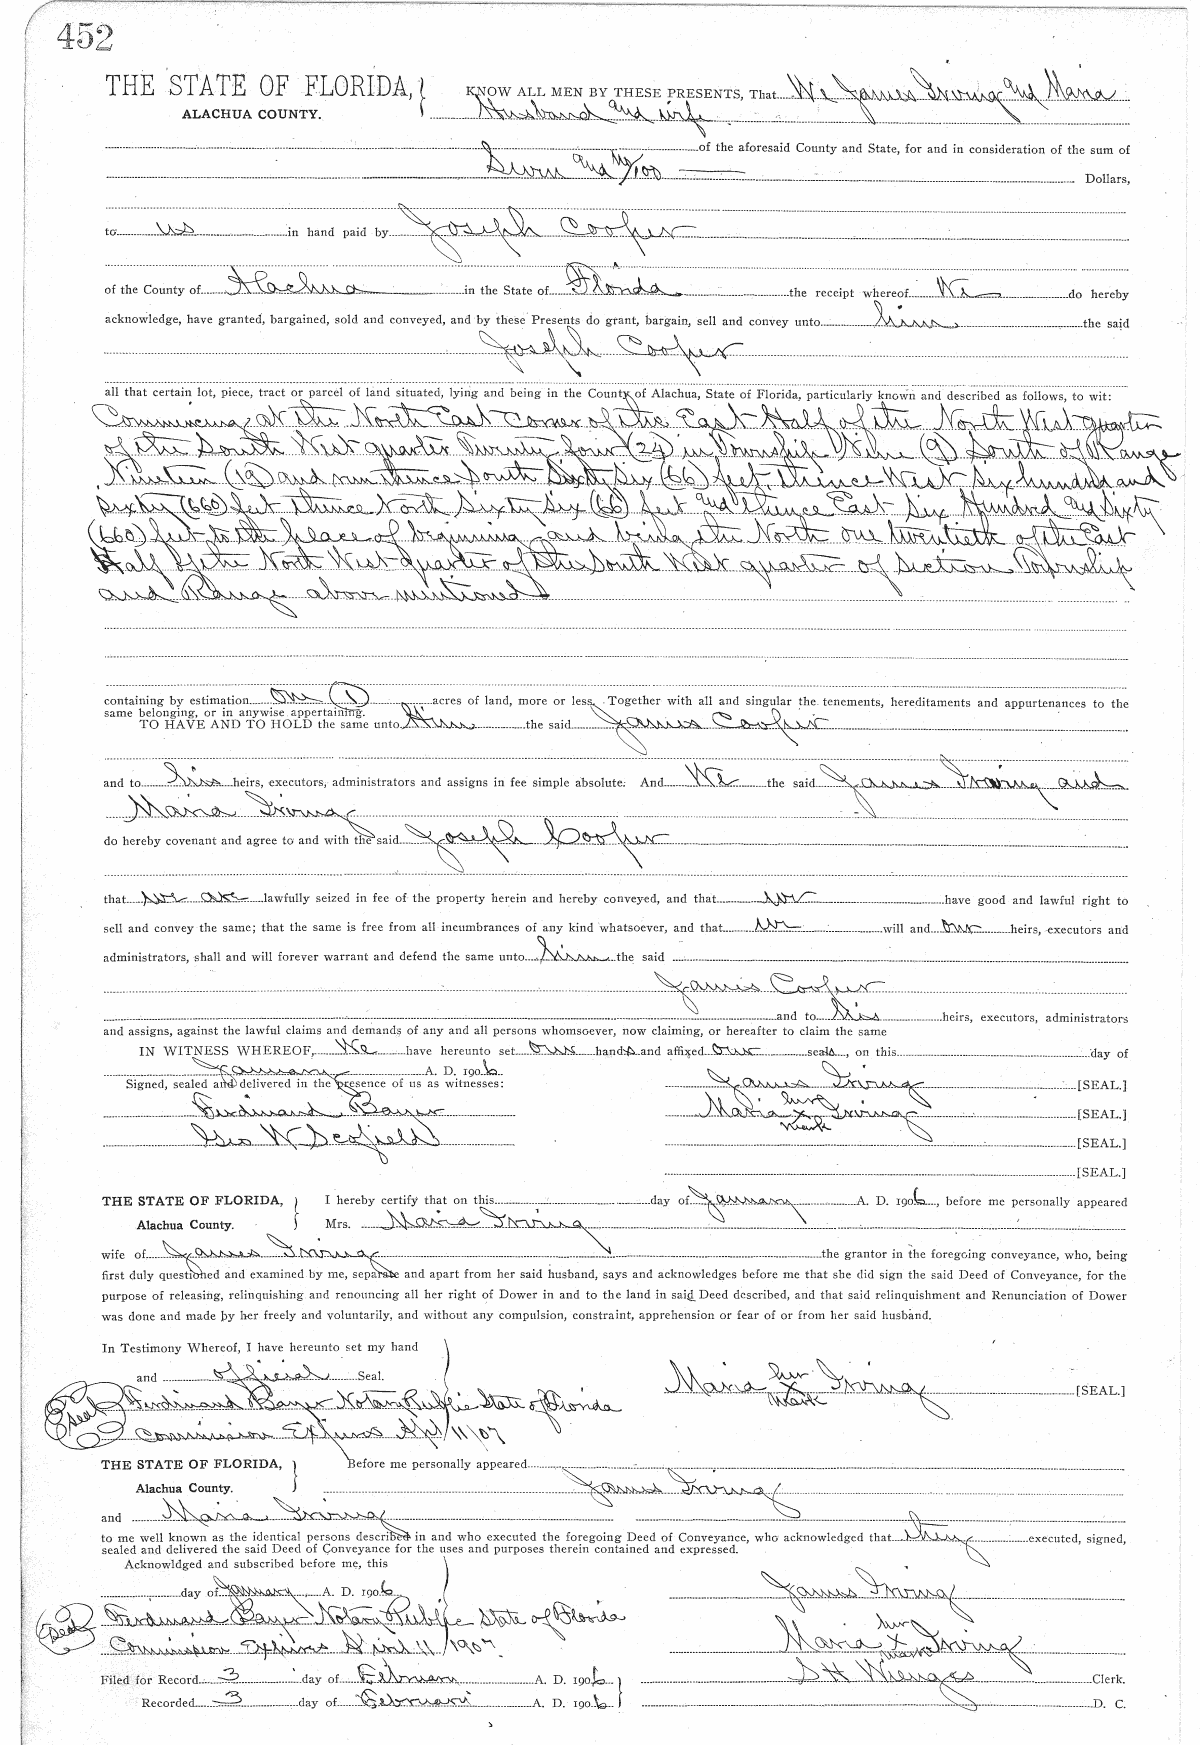 452
THE STATE OF FLORIDA, KNOW ALL MEN BY THESE PRESENTS, That We James Irving and Maria
ALACHUA COUNTY. Husband and wife
of the aforesaid County and State, for and in consideration of the sum of
Seven and no/100 Dollars,
to us in hand paid by Joseph Cooper
of the County of Alachua in the State of Florida the receipt whereof We do hereby
acknowledge, have granted, bargained, sold and conveyed, and by these Presents do grant, bargain, sell and convey unto him the said
Joseph Cooper
all that certain lot, piece, tract or parcel of land situated, lying and being in the County of Alachua, State of Florida, particularly known and described as follows, to wit:
Commencing at the North East corner of the East Half of the North West quarter
of the South West quarter Twenty four (24) in Township Nine (9) South of Range
Nineteen (19) and run thence South Sixty Six (66) feet, thence West Six hundred and
sixty (660) feet thence North Sixty Six (66) feet and thence East Six Hundred and Sixty
(660) feet to the place of beginning and being the North one twentieth of the East
Half of the North West quarter of the South West quarter of Section Township
and Range above mentioned
containing by estimation one (1) acres of land, more or less. Together with all and singular the tenements, hereditaments and appurtenances to the
same belonging, or in anywise appertaining.
TO HAVE AND TO HOLD the same unto Him the said James Cooper
and to his heirs, executors, administrators and assigns in fee simple absolute: And We the said James Irving and
Maria Irving
do hereby covenant and agree to and with the said Joseph Cooper
that we are lawfully seized in fee of the property herein and hereby conveyed, and that we have good and lawful right to
sell and convey the same; that the same is free from all incumbrances of any kind whatsoever, and that we will and our heirs, executors and
administrators, shall and will forever warrant and defend the same unto him the said
James Cooper
and to his heirs, executors, administrators
and assigns, against the lawful claims and demands of any and all persons whomsoever, now claiming, or hereafter to claim the same
IN WITNESS WHEREOF, We have hereunto set our hands and affixed our seals, on this day of
January A. D. 1906
Signed, sealed and delivered in the presence of us as witnesses: James Irving [SEAL.]
Ferdinand Bayer Maria her x mark Irving [SEAL.]
Geo W Scofield [SEAL.]
[SEAL.]
THE STATE OF FLORIDA, I hereby certify that on this day of January A. D. 1906, before me personally appeared
Alachua County. Mrs. Maria Irving
wife of James Irving the grantor in the foregoing conveyance, who, being
first duly questioned and examined by me, separate and apart from her said husband, says and acknowledges before me that she did sign the said Deed of Conveyance, for the
purpose of releasing, relinquishing and renouncing all her right of Dower in and to the land in said Deed described, and that said relinquishment and Renunciation of Dower
was done and made by her freely and voluntarily, and without any compulsion, constraint, apprehension or fear of or from her said husband.
In Testimony Whereof, I have hereunto set my hand
and official Seal. Maria her x mark Irving [SEAL.]
Seal Ferdinand Bayer Notary Public State of Florida
Commission Expires Apl 11/07
THE STATE OF FLORIDA, Before me personally appeared
Alachua County. James Irving
and Maria Irving
to me well known as the identical persons described in and who executed the foregoing Deed of Conveyance, who acknowledged that they executed, signed,
sealed and delivered the said Deed of Conveyance for the uses and purposes therein contained and expressed.
Acknowldged and subscribed before me, this
day of January A. D. 1906 James Irving
Seal Ferdinand Bayer Notary Public State of Florida
Commission Expires April 11/1907. Maria her x mark Irving
Filed for Record 3 day of February A. D. 1906 S H Wienges Clerk.
Recorded 3 day of February A. D. 1906 D. C.